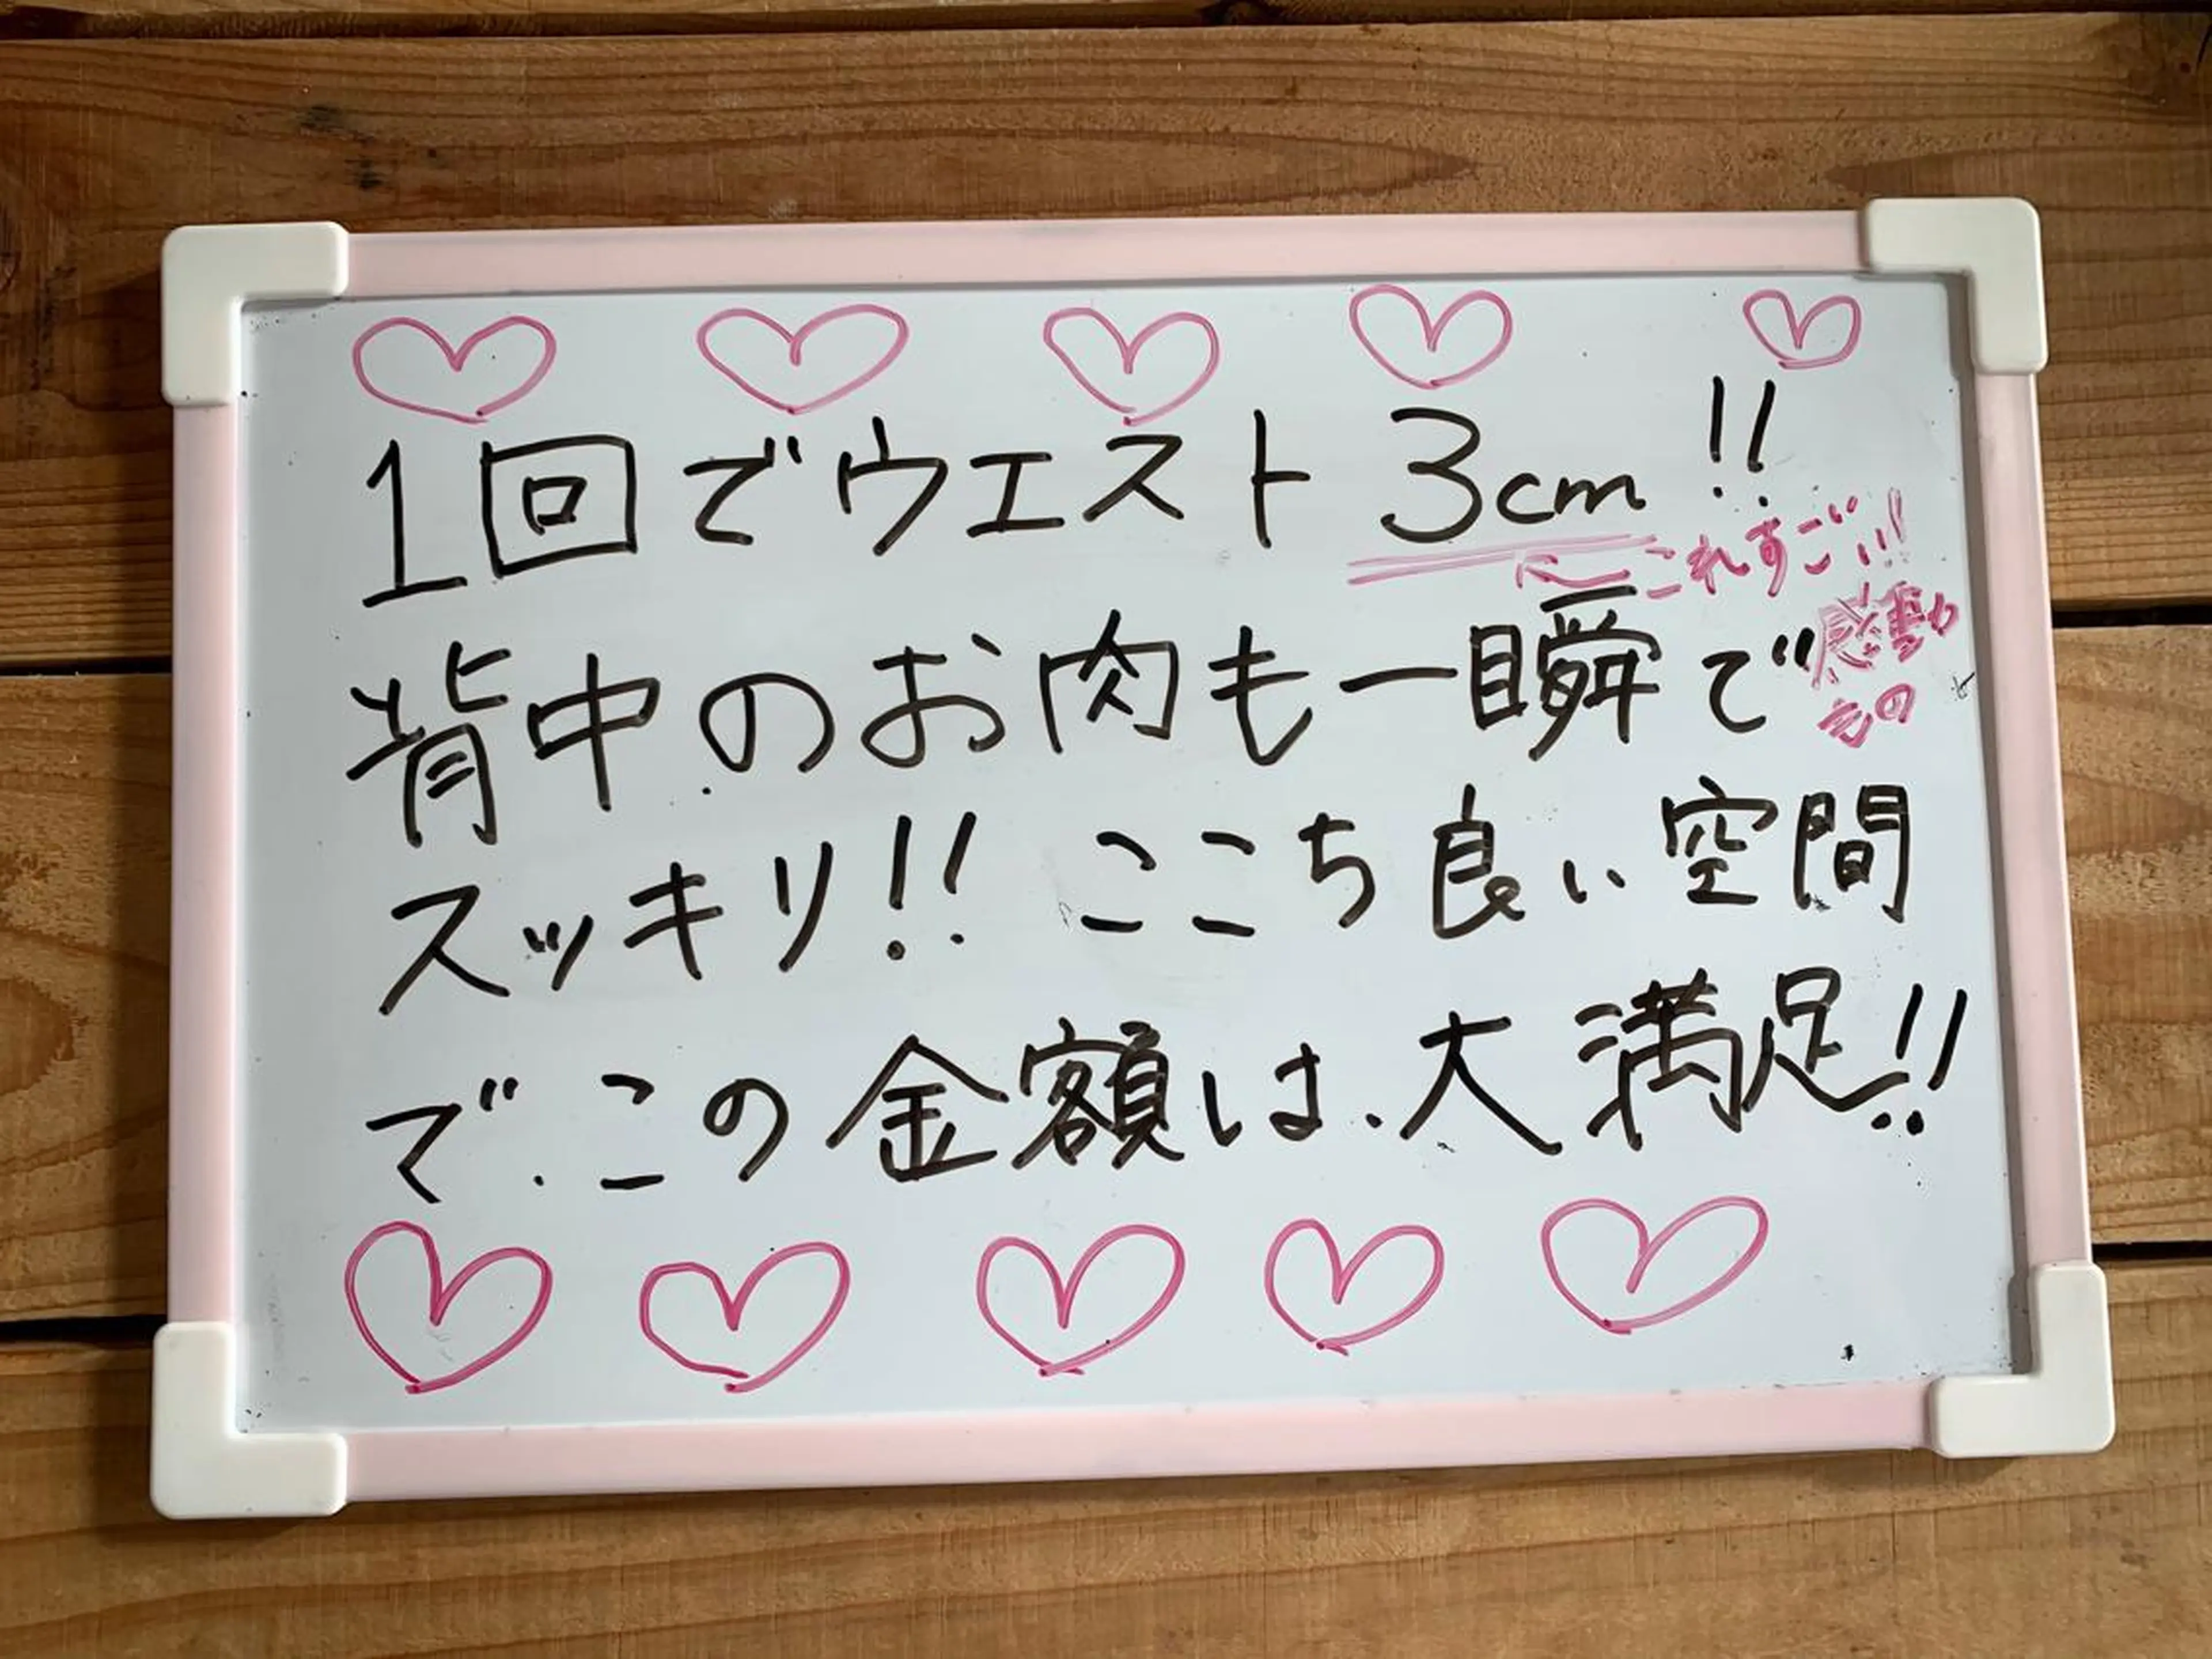 1回でウエスト 3cm!!
これすごい!!
感動
もの
背中のお肉も一瞬で
スッキリ!! ここち良い空間
で、この金額は、大満足!!